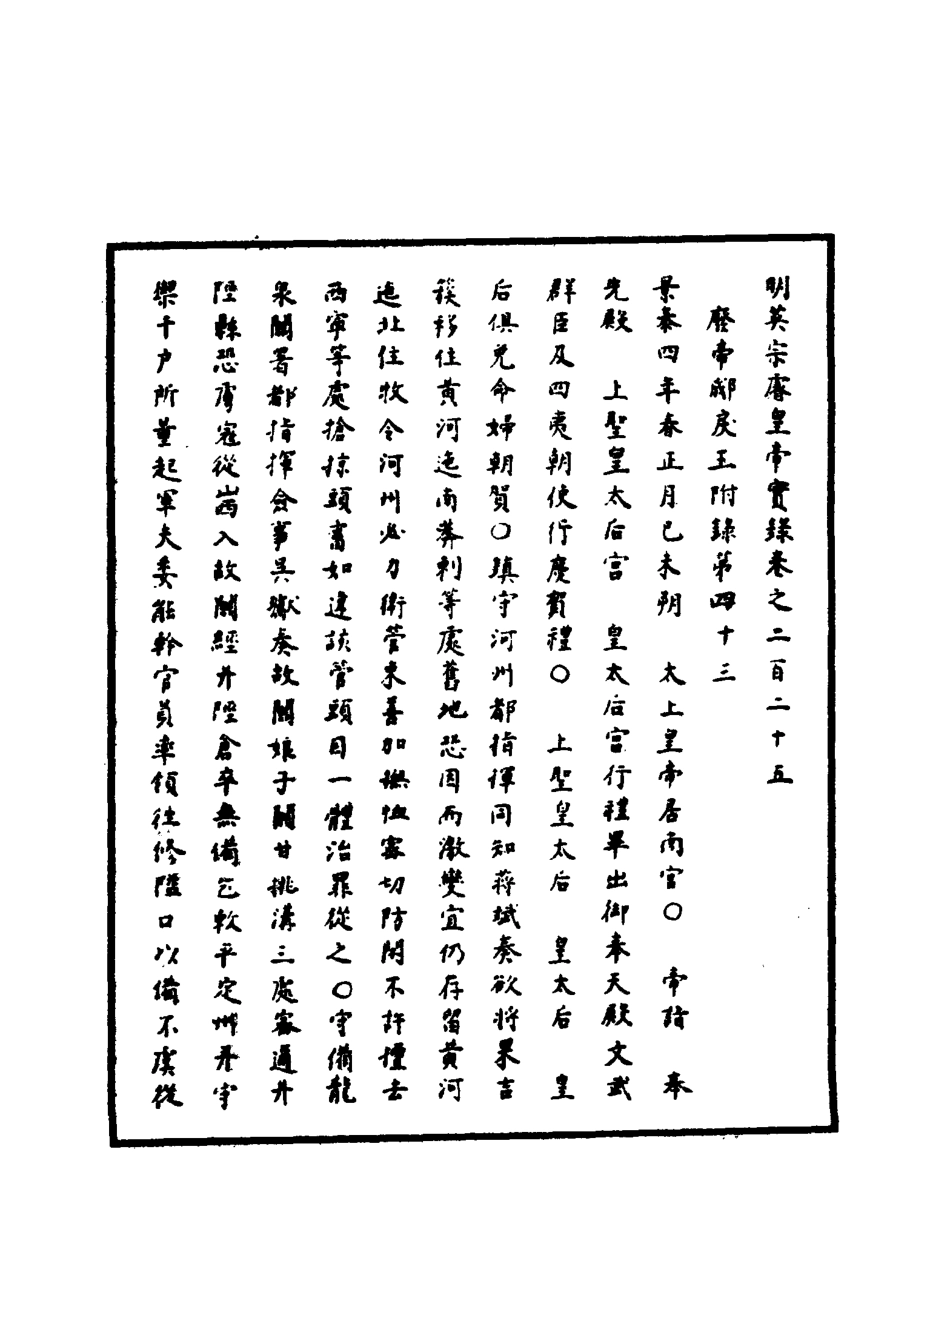 明英宗睿皇帝實錄卷之二百二十五
廢帝郕戾王附錄第四十三
景泰四年春正月己未朔 太上皇帝居南宮〇 帝詣 奉
先殿 上聖皇太后宮 皇太后宮行禮畢出御奉天殿文武
群臣及四夷朝使行慶賀禮〇 上聖皇太后 皇太后 皇
后俱免命婦朝賀〇鎮守河州都指揮同知蔣斌奏欲將果吉
簇移住黃河迤南莽剌等處舊地恐因而激變宜仍存留黃河
迤北住牧令河州必力衛管束善加撫恤密切防閑不許擅去
西寧等處搶掠頭畜如違該管頭目一體治罪從之〇守備龍
泉關署都指揮僉事吳嶽奏故關娘子關甘挑溝三處密邇井
陘縣恐虜寇從山西入故關經井陘倉卒無備乞敕平定州并守
禦千戶所量起軍夫委能幹官員率領往修隘口以備不虞從